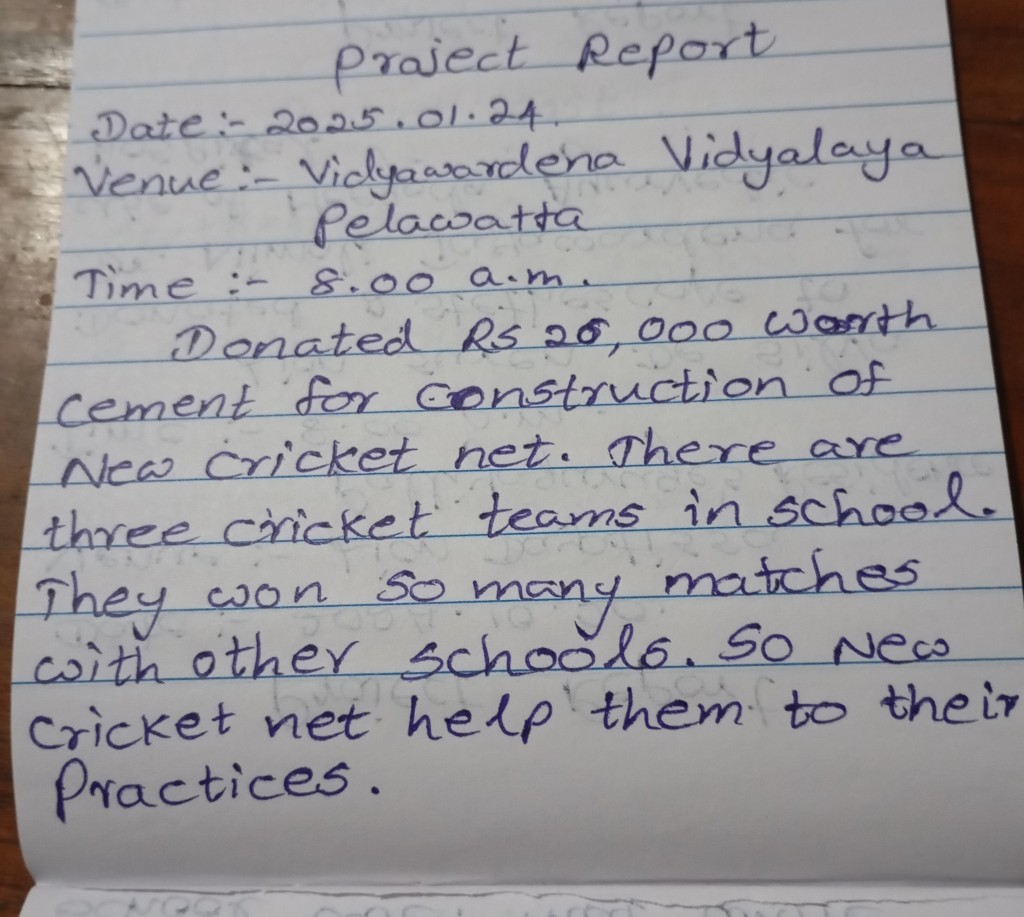 Project Report
Date :- 2025.01.24.
Venue :- Vidyawardena Vidyalaya
Pelawatta
Time :- 8.00 a.m.
Donated Rs 25,000 worth
cement for construction of
New cricket net. There are
three cricket teams in school.
They won so many matches
with other schools. So New
cricket net help them to their
Practices.